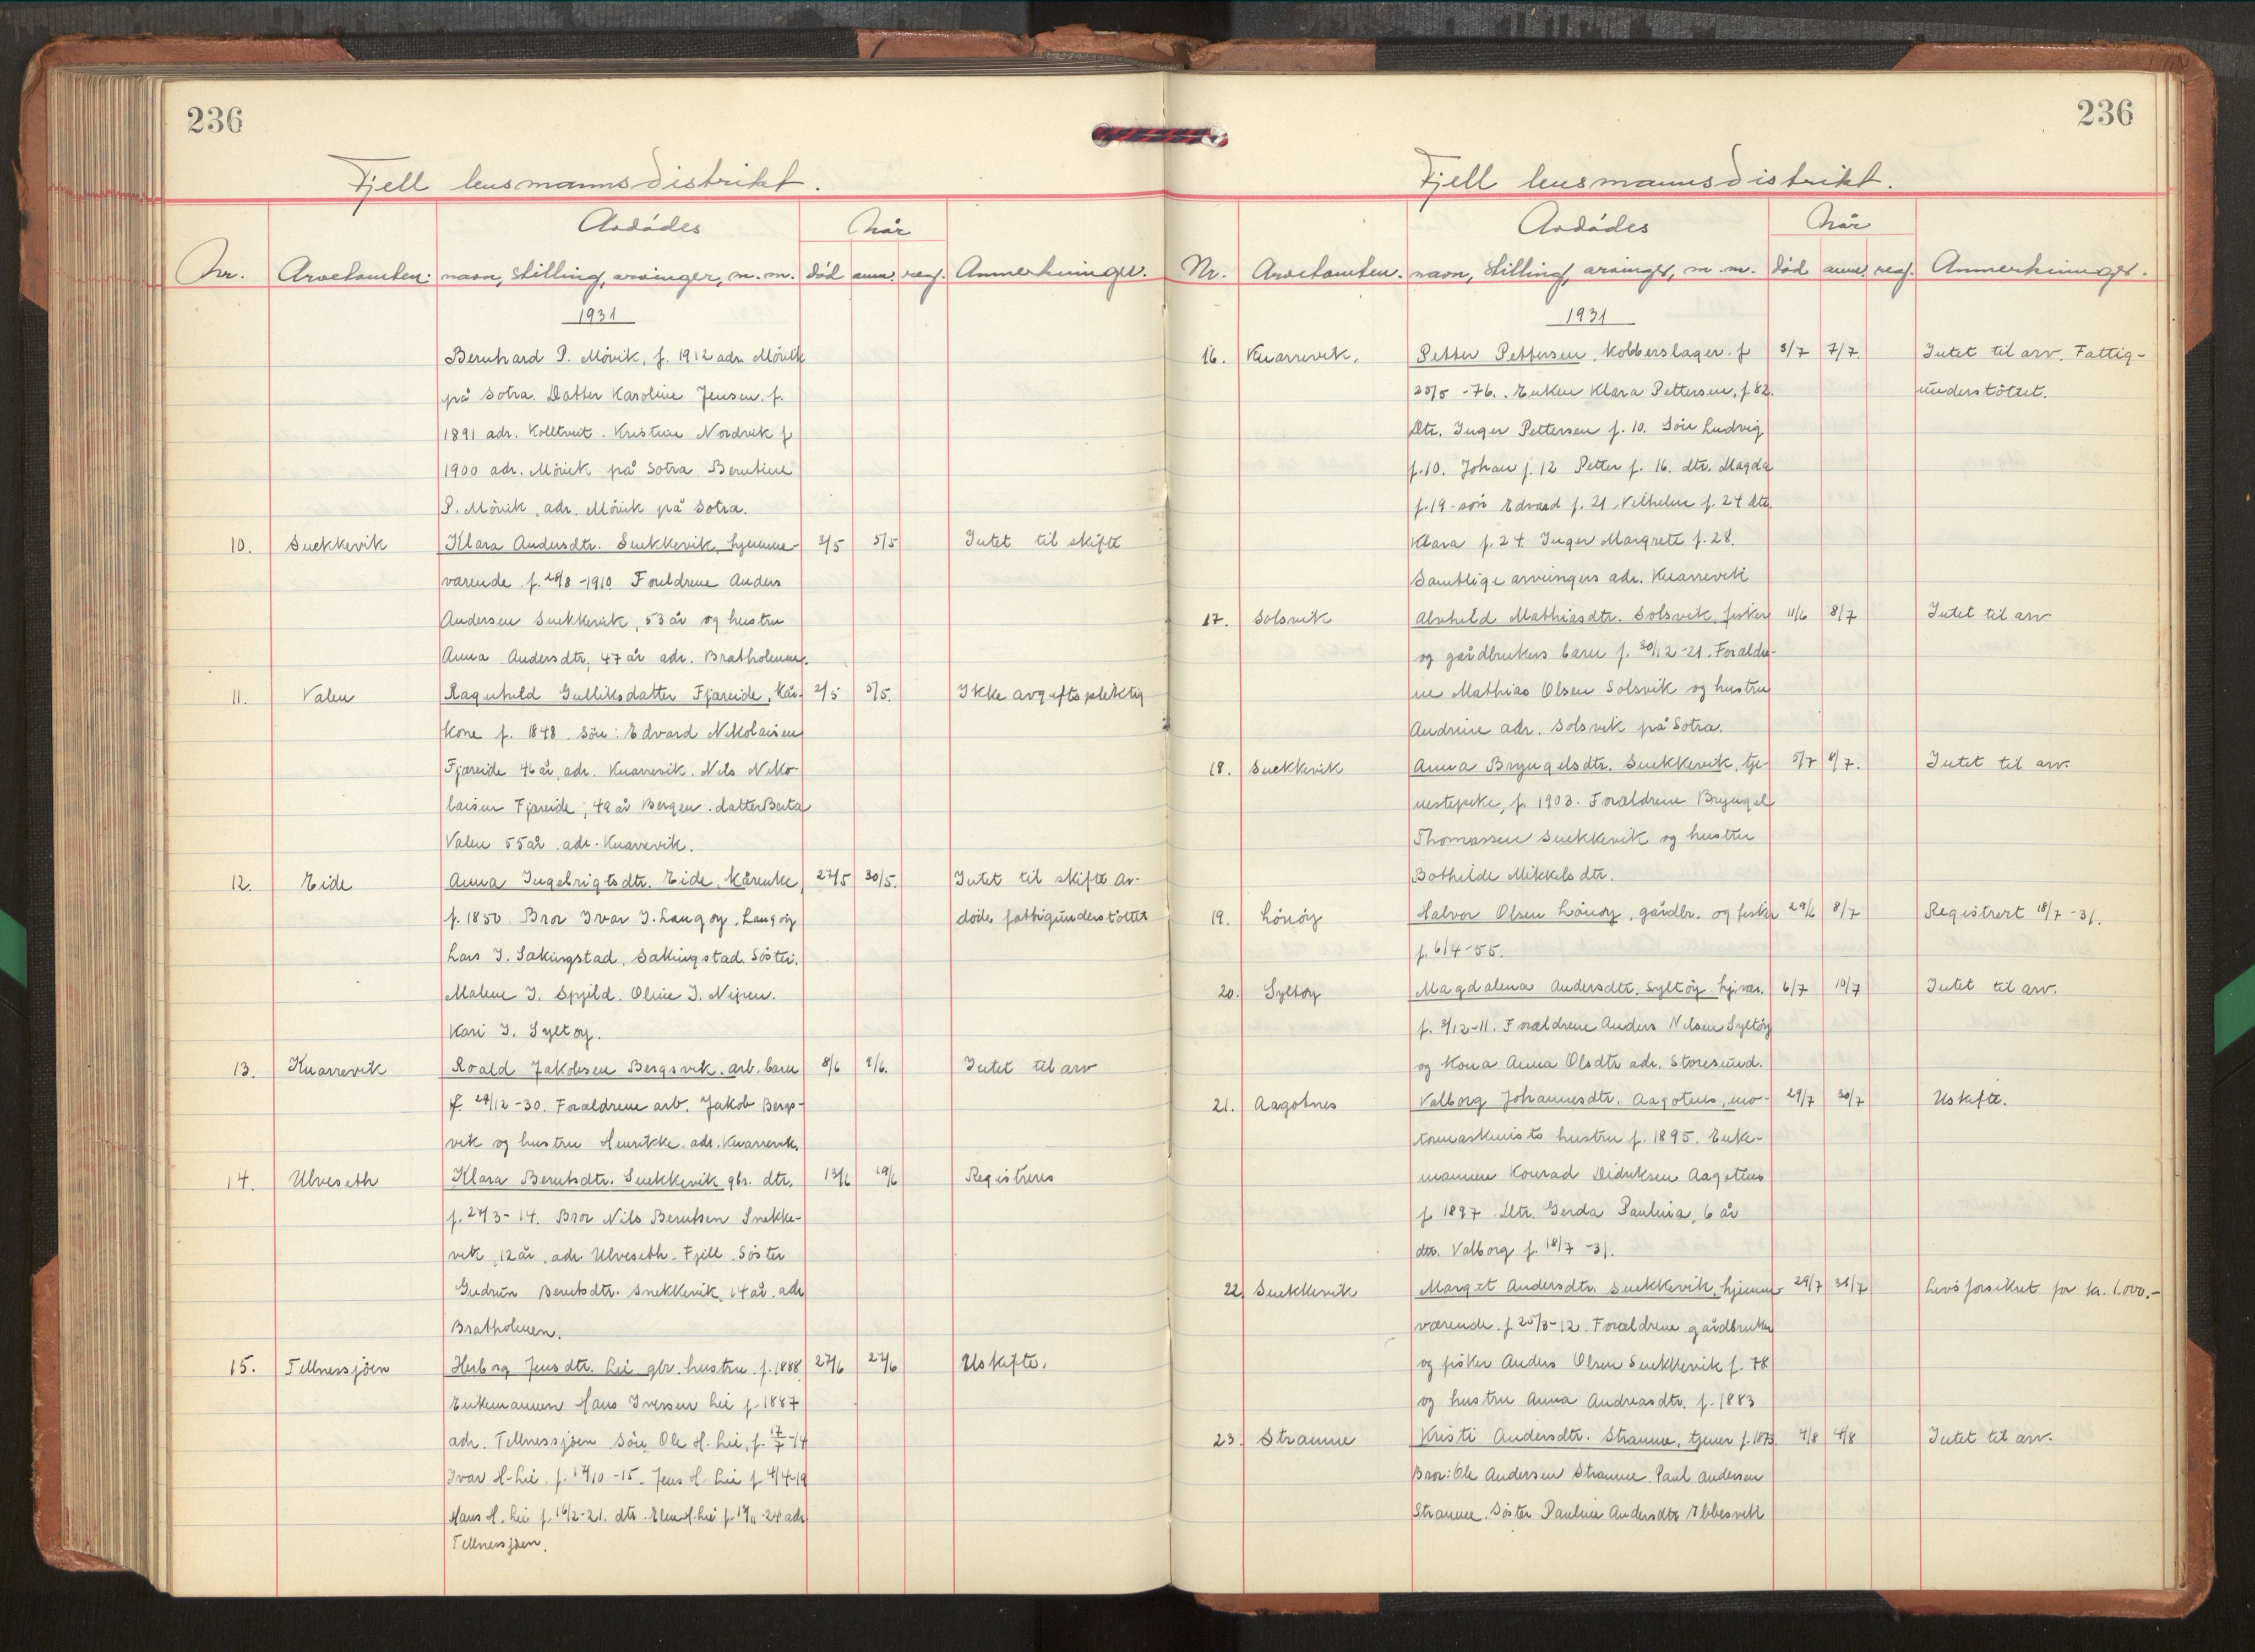 236
Fjell lensmannsdistrikt.
Avdødes
Når
Nr. Arvetomten. navn, stilling, arvinger, m. m. død anm. reg. Anmerkninger.
1931
Bernhard P. Mövik, f. 1912 adr. Mövik
på Sotra. Datter Karoline Jensen. f.
1891 adr. Kolltveit. Kristine Nordvik f
1900 adr. Mövik på Sotra Berntine
P. Mövik, adr. Mövik på Sotra.
10. Snekkevik Klara Andersdtr. Snekkevik, hjemme- 2/5 5/5 Intet til skifte
værende f. 28/8 -1910 Foreldrene Anders
Andersen Snekkevik, 53 år og hustru
Anna Andersdtr, 47 år adr. Bratholmen.
11. Valen Ragnhild Gulliksdatter Fjæreide, kår- 2/5 5/5. Ikke avgiftspliktig
kone f. 1848. Sön: Edvard Nikolaisen
Fjæreide 46 år, adr. Knarrevik. Nils Niko-
laisen Fjæreide, 49 år Bergen. datter Berta
Valen 55 år adr. Knarrevik.
12. Eide Anna Ingebrigtsdtr. Eide, kårenke 27/5 30/5. Intet til skifte Av-
f. 1850 Bror Ivar I. Langöy, Langöy döde fattigunderstöttet
Lars I. Sakingstad, Sakingstad. Söster.
Malene I. Spjeld. Oline I. Nipen.
Kari I. Syltöy.
13. Knarrevik Roald Jakobsen Bergsvik. arb. barn 8/6 8/6. Intet til arv
f. 29/12 -30. Foreldrene arb. Jakob Bergs-
vik og hustru Henrikke. adr. Knarrevik.
14. Ulveseth Klara Berntsdtr. Snekkevik gbr. dtr. 13/6 19/6 Registreres
f. 27/3 - 14. Bror Nils Berntsen Snekke-
vik, 12 år, adr Ulveseth. Fjell. Söster
Gudrun Berntsdtr. Snekkevik, 14 år. adr
Bratholmen.
15. Tellnessjöen Herborg Jensdtr. Lie gbr. hustru f. 1888 27/6 27/6 Uskifte.
Enkemannen Hans Iversen Lie f. 1887
adr. Tellnessjöen Sön Ole H. Lie, f. 17/7 -14
Ivar H. Lie. f. 14/10 -15. Jens H. Lie f 4/4-19
Hans H. Lie f. 16/2-21. dtr. H. Lie f. -24 adr
Tellnessjöen.
236
Fjell lensmannsdistrikt.
Avdødes
Når
Nr. Arvetomten. navn, stilling, arvinger, m. m. død anm. reg. Anmerkninger.
1931
16. Knarrevik. Petter Pettersen, kobberslager. f 3/7 7/7. Intet til arv. Fattig-
20/5 -76. Enken Klara Pettersen, f 82. understöttet.
dtr. Inger Pettersen f. 10. Sön Ludvig
f. 10. Johan f. 12 Petter f. 16. dtr. Magda
f. 19 - sön Edvard f. 21. Vilhelm f. 24 dtr.
Klara f. 24 Inger Margrete f. 28.
Samtlige arvingers adr. Knarrevik
17. Solsvik Alvhild Mathiasdtr. Solsvik, fisker 11/6 8/7 Intet til arv
og gårdbrukers barn f. 30/12 -21. Foreldre-
ne Mathias Olsen Solsvik og hustru
Andrine adr. Solsvik på Sotra.
18. Snekkevik Anna Bryngelsdtr. Snekkevik, tje- 5/7 8/7. Intet til arv.
nestepike, f. 1903. Foreldrene Bryngel
Thomassen Snekkevik og hustru
Bothilde Mikkelsdtr.
19. Lönöy Halvor Olsen Lönöy, gårdbr. og fisker 29/6 8/7 Registrert 18/7 -31.
f. 6/4 -55.
20. Syltöy Magdalena Andersdtr. Syltöy hj.vær. 6/7 10/7 Intet til arv.
f. 3/12 -11. Foreldrene Anders Nilsen Syltöy
og kona Anna Olsdtr adr. Storesund.
21. Aagotnes Valborg Johannesdtr. Aagotnes, mo- 29/7 30/7 Uskifte.
tormaskinists hustru f. 1895. Enke-
mannen Konrad Didriksen Aagotnes
f 1897. dtr. Gerda Paulina, 6 år
dtr. Valborg f. 18/7 -31.
22. Snekkevik Marget Andersdtr. Snekkevik, hjemme- 29/7 31/7 Livsforsikret for kr. 1.000.-
værende. f 25/3-12. Foreldrene gårdbruker
og fisker Anders Olsen Snekkevik f. 78
og hustru Anna Andreasdtr. f. 1883
23. Straume Kristi Andersdtr. Straume, tjener f. 1873. 4/8 4/8 Intet til arv.
Bror: Ole Andersen Straume. Paul Andersen
Straume. Söster Pauline Andersdtr Ebbesvik